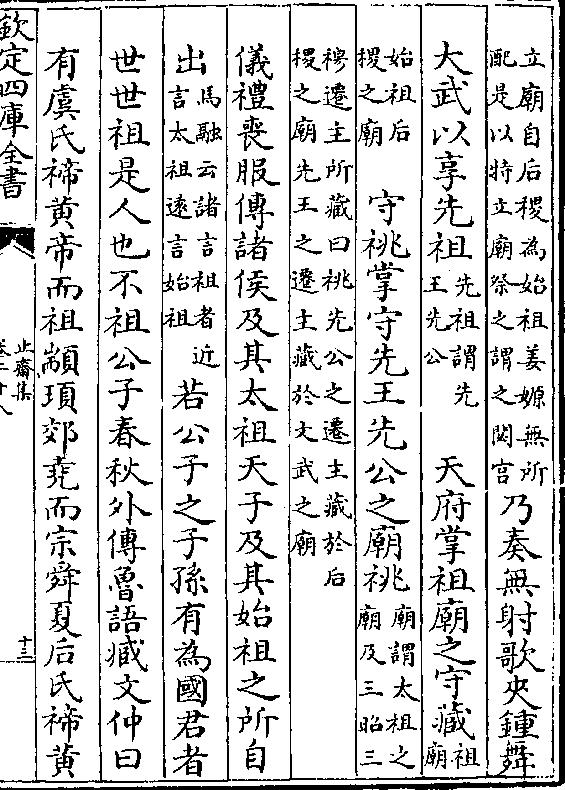 立廟自后稷為始祖姜嫄無所
配是以特立廟祭之謂之閟宫
乃奏無射歌夾鍾舞
大武以享先祖
先祖謂先
王先公
天府掌祖廟之守藏
祖
廟
始祖后
稷之廟
守祧掌守先王先公之廟祧
廟謂太祖之
廟及三昭三
穆遷主所藏曰祧先公之遷主藏於后
稷之廟先王之遷主藏於文武之廟
儀禮喪服傳諸侯及其太祖天子及其始祖之所自
出
馬融云諸言祖者近
言太祖逺言始祖
若公子之子孫有為國君者
世世祖是人也不祖公子春秋外傳魯語臧文仲曰
有虞氏禘黄帝而祖顓頊郊堯而宗舜夏后氏禘黄
欽定四庫全書
止齋集
卷二十八
十三